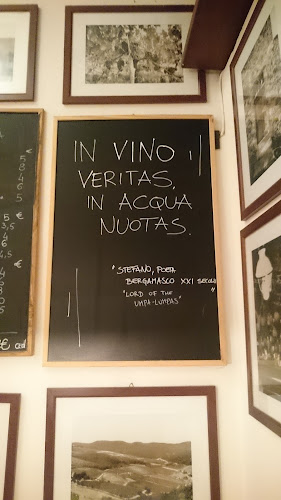 IN VINO
VERITAS,
IN ACQUA
NUOTAS.
"STEFANO, POETA
BERGAMASCO XXI SECOLO"
"LORD OF THE
UMPA-LUMPAS"
€
5
8
4
5
6
4,5